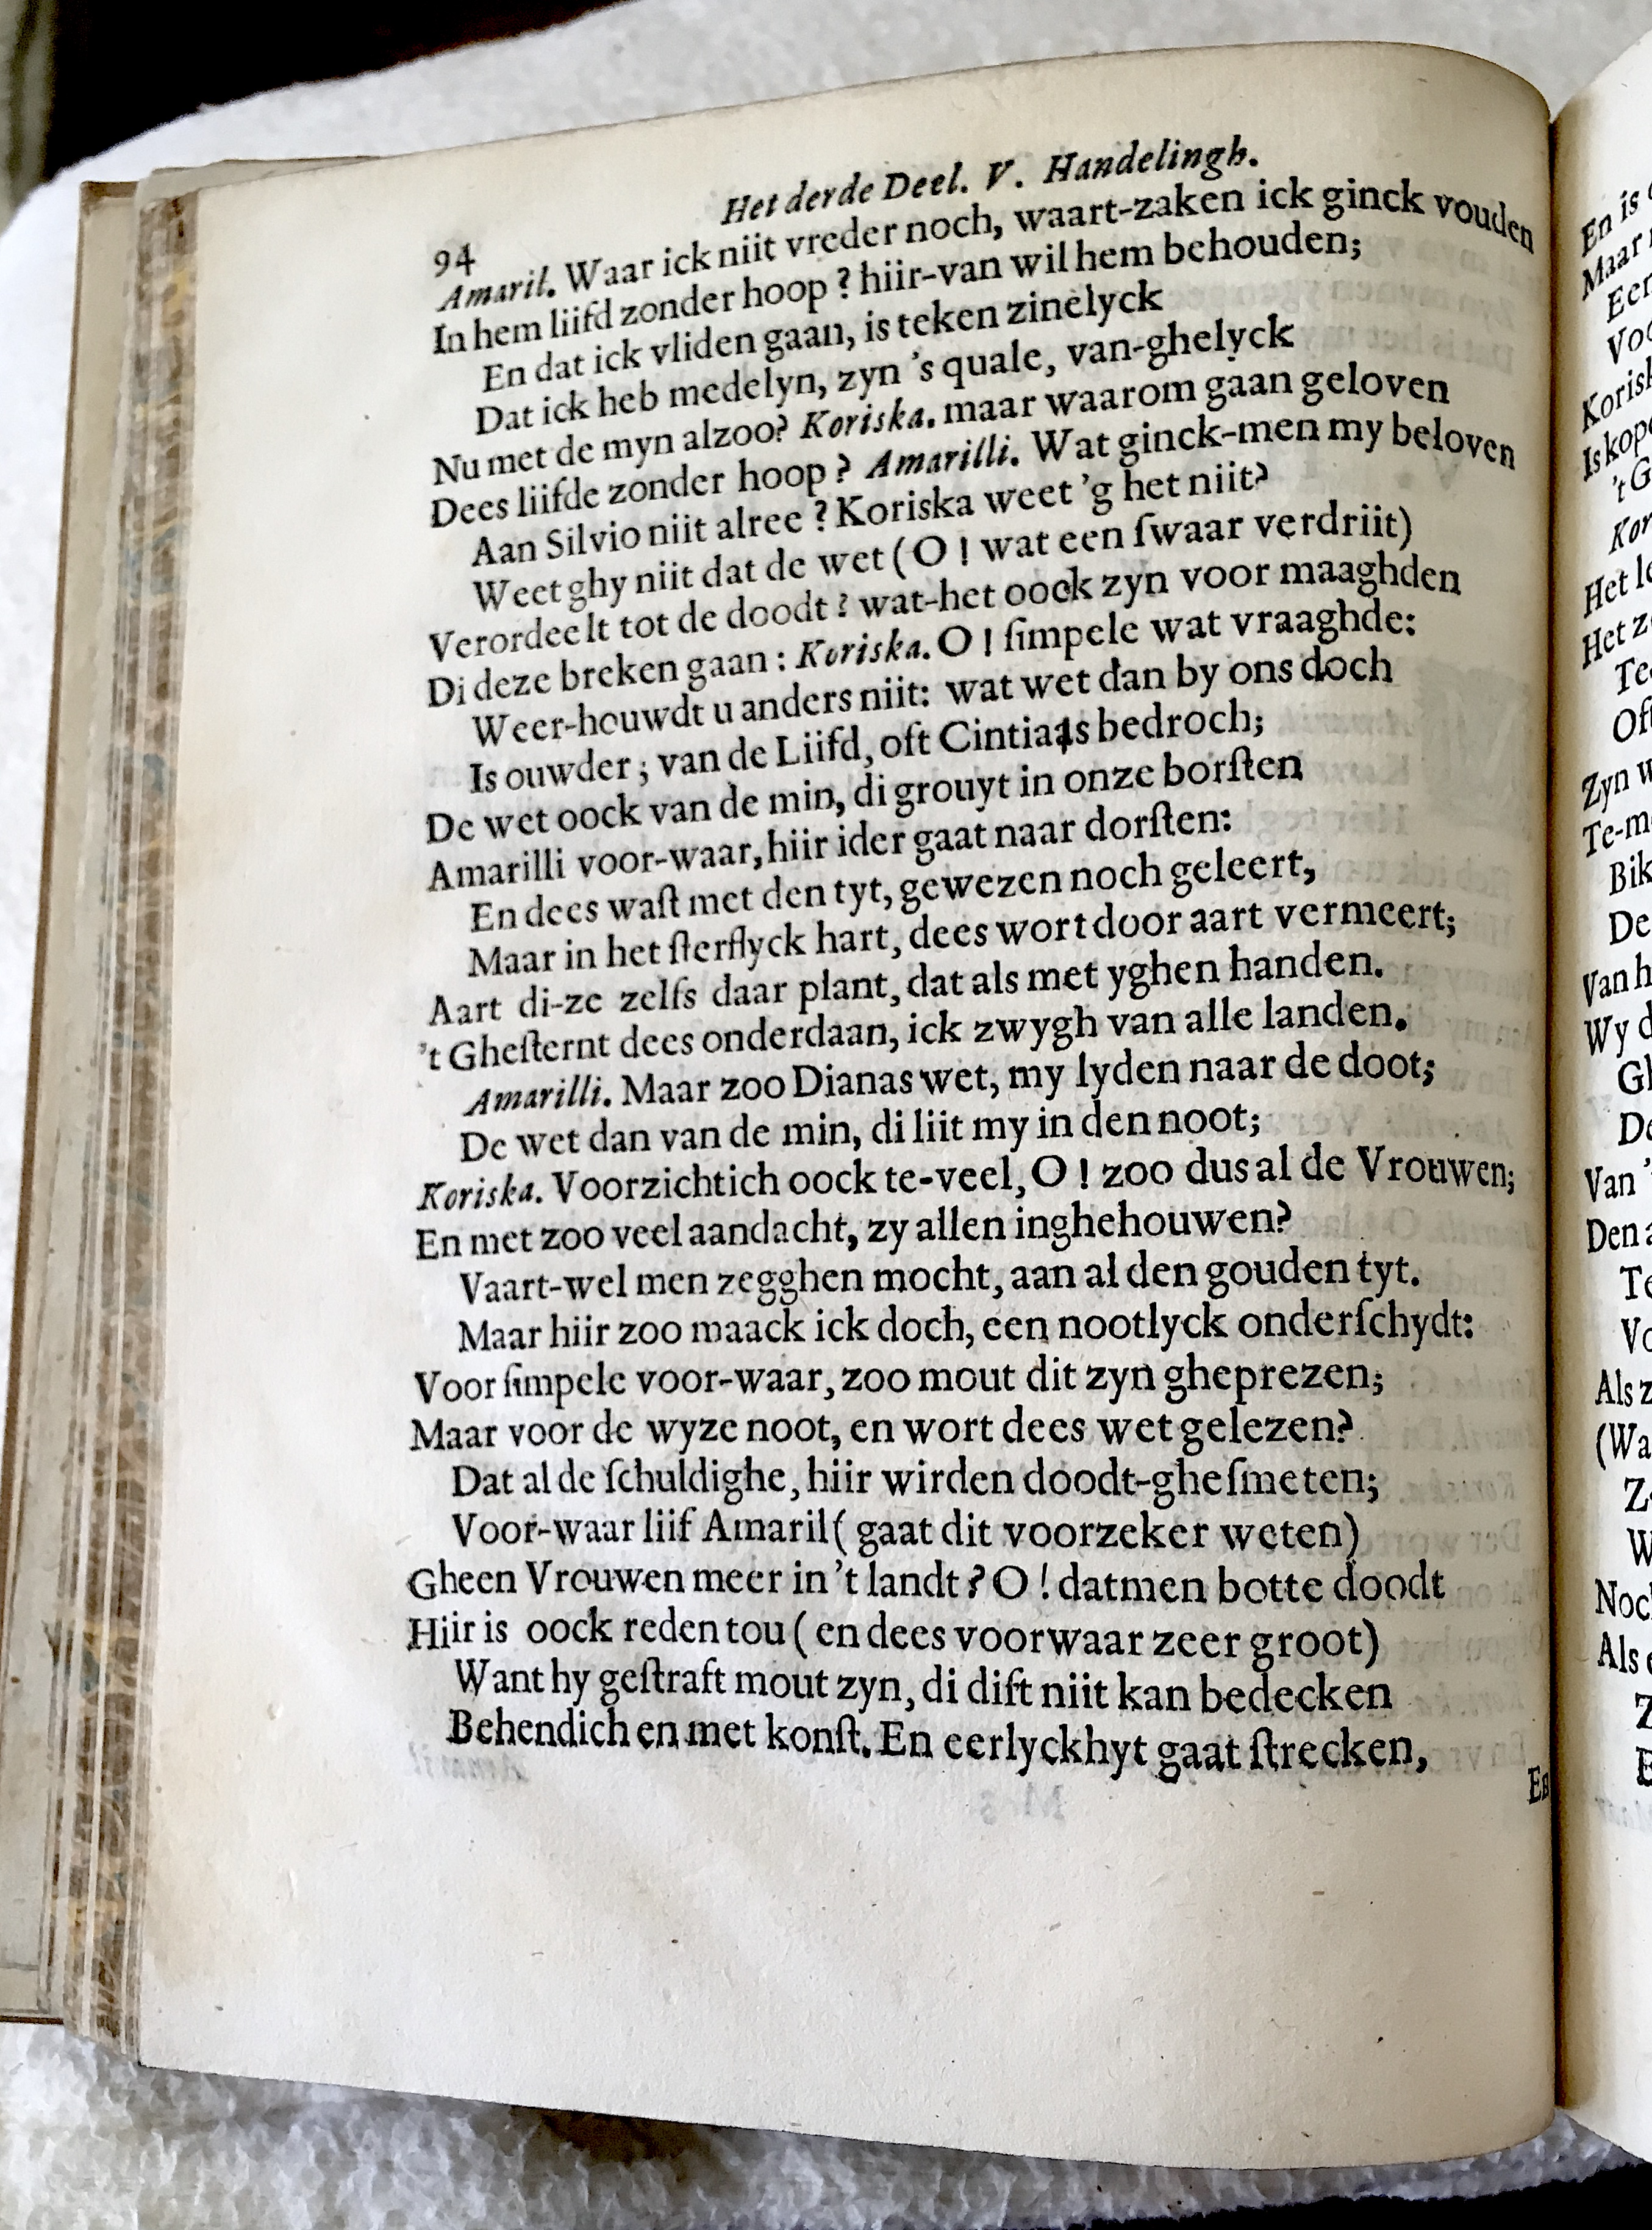 94
Het derde Deel. V. Handelingh.
Amaril. Waar ick niit vreder noch, waart-zaken ick ginck vouden
In hem liifd zonder hoop ? hiir-van wil hem behouden;
En dat ick vliden gaan, is teken zinelyck
Dat ick heb medelyn, zyn 's quale, van-ghelyck
Nu met de myn alzoo? Koriska. maar waarom gaan geloven
Dees liifde zonder hoop ? Amarilli. Wat ginck-men my beloven
Aan Silvio niit alree ? Koriska weet 'g het niit?
Weet ghy niit dat de wet ( O ! wat een ſwaar verdriit)
Verordeelt tot de doodt ? wat-het oock zyn voor maaghden
Di deze breken gaan : Koriska. O ! ſimpele wat vraaghde:
Weer-houwdt u anders niit: wat wet dan by ons doch
Is ouwder ; van de Liifd, oft Cintiaas bedroch;
De wet oock van de min, di grouyt in onze borſten
Amarilli voor-waar, hiir ider gaat naar dorſten:
En dees waſt met den tyt, gewezen noch geleert,
Maar in het ſterflyck hart, dees wort door aart vermeert;
Aart di-ze zelfs daar plant, dat als met yghen handen.
't Gheſternt dees onderdaan, ick zwygh van alle landen.
Amarilli. Maar zoo Dianas wet, my lyden naar de doot;
De wet dan van de min, di liit my in den noot;
Koriska. Voorzichtich oock te-veel, O ! zoo dus al de Vrouwen;
En met zoo veel aandacht, zy allen inghehouwen?
Vaart-wel men zegghen mocht, aan al den gouden tyt.
Maar hiir zoo maack ick doch, een nootlyck onderſchydt:
Voor ſimpele voor-waar, zoo mout dit zyn gheprezen;
Maar voor de wyze noot, en wort dees wet gelezen?
Dat al de ſchuldighe, hiir wirden doodt-gheſmeten;
Voor-waar liif Amaril ( gaat dit voorzeker weten)
Gheen Vrouwen meer in 't landt ? O ! datmen botte doodt
Hiir is oock reden tou ( en dees voorwaar zeer groot)
Want hy geſtraft mout zyn, di dift niit kan bedecken
Behendich en met konſt. En eerlyckhyt gaat ſtrecken,